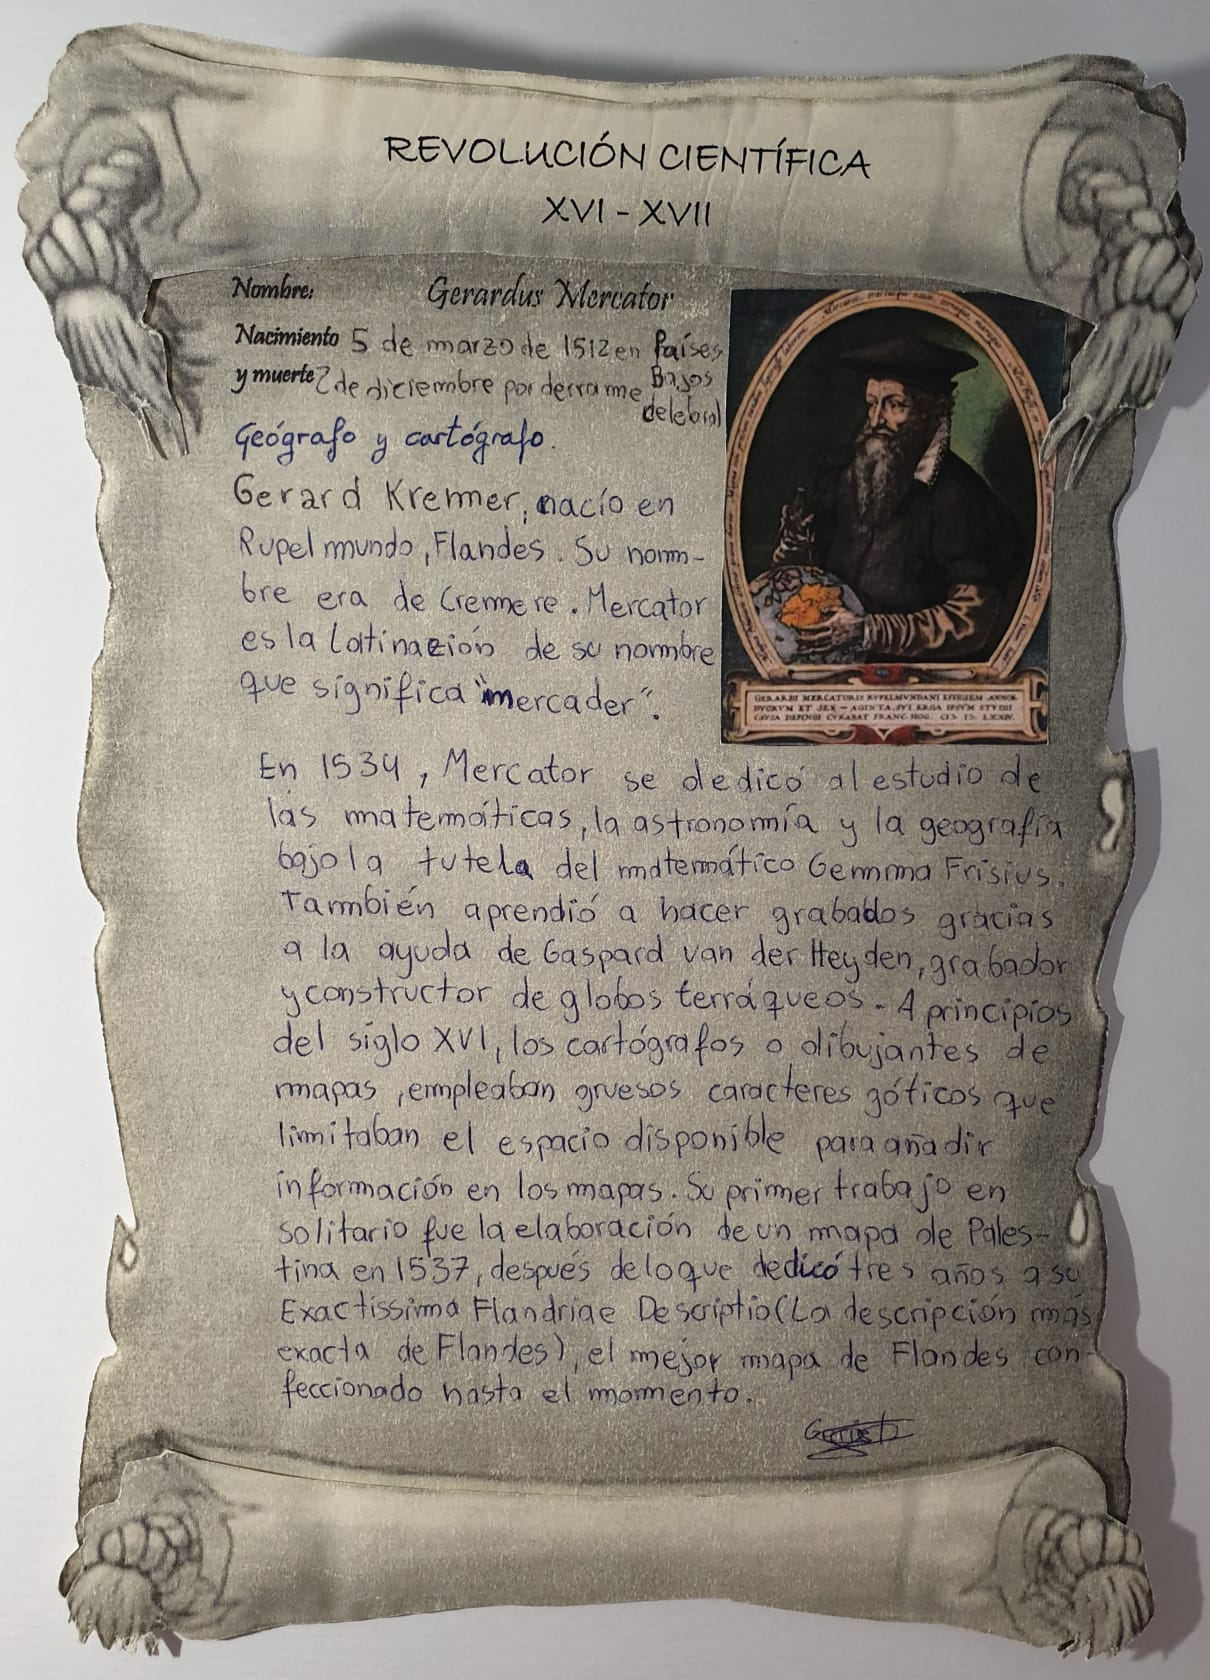 REVOLUCIÓN CIENTÍFICA
XVI - XVII
Nombre: Gerardus Mercator
Nacimiento 5 de marzo de 1512 en Países Bajos
y muerte 2 de diciembre por derrame
Geógrafo y cartógrafo.
Gerard Kremer, nacío en
Rupelmundo, Flandes. Su nom-
bre era de Cremere. Mercator
es la latinazión de su nombre
que significa "mercader".
GERARDI MERCATORIS RVPELMVNDANI EFFIGIEM ANNOR.
DVORVM ET SEX - AGINTA, SVI ERGA IPSVM STVDII
CAVSA DEPINGI CVRABAT FRANC. HOG. CIↃ. IↃ. LXXIV.
En 1534, Mercator se dedicó al estudio de
las matemáticas, la astronomía y la geografía
bajo la tutela del matemático Gemma Frisius.
También aprendió a hacer grabados gracias
a la ayuda de Gaspard van der Heyden, grabador
y constructor de globos terráqueos. A principios
del siglo XVI, los cartógrafos o dibujantes de
mapas, empleaban gruesos caracteres góticos que
limitaban el espacio disponible para añadir
información en los mapas. Su primer trabajo en
solitario fue la elaboración de un mapa de Pales-
tina en 1537, después de lo que dedicó tres años a su
Exactissima Flandriae Descriptio (La descripción más
exacta de Flandes), el mejor mapa de Flandes con-
feccionado hasta el momento.